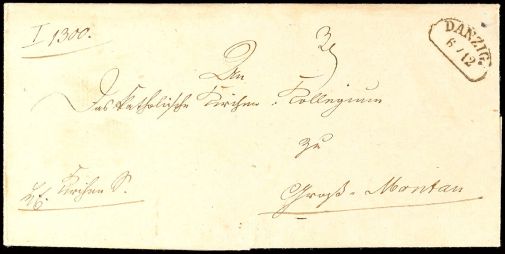 I 1300.
DANZIG.
6 / 12
An
Das Katholische Kirchen-Collegium
zu
Kirchen S.
Groß-Montau